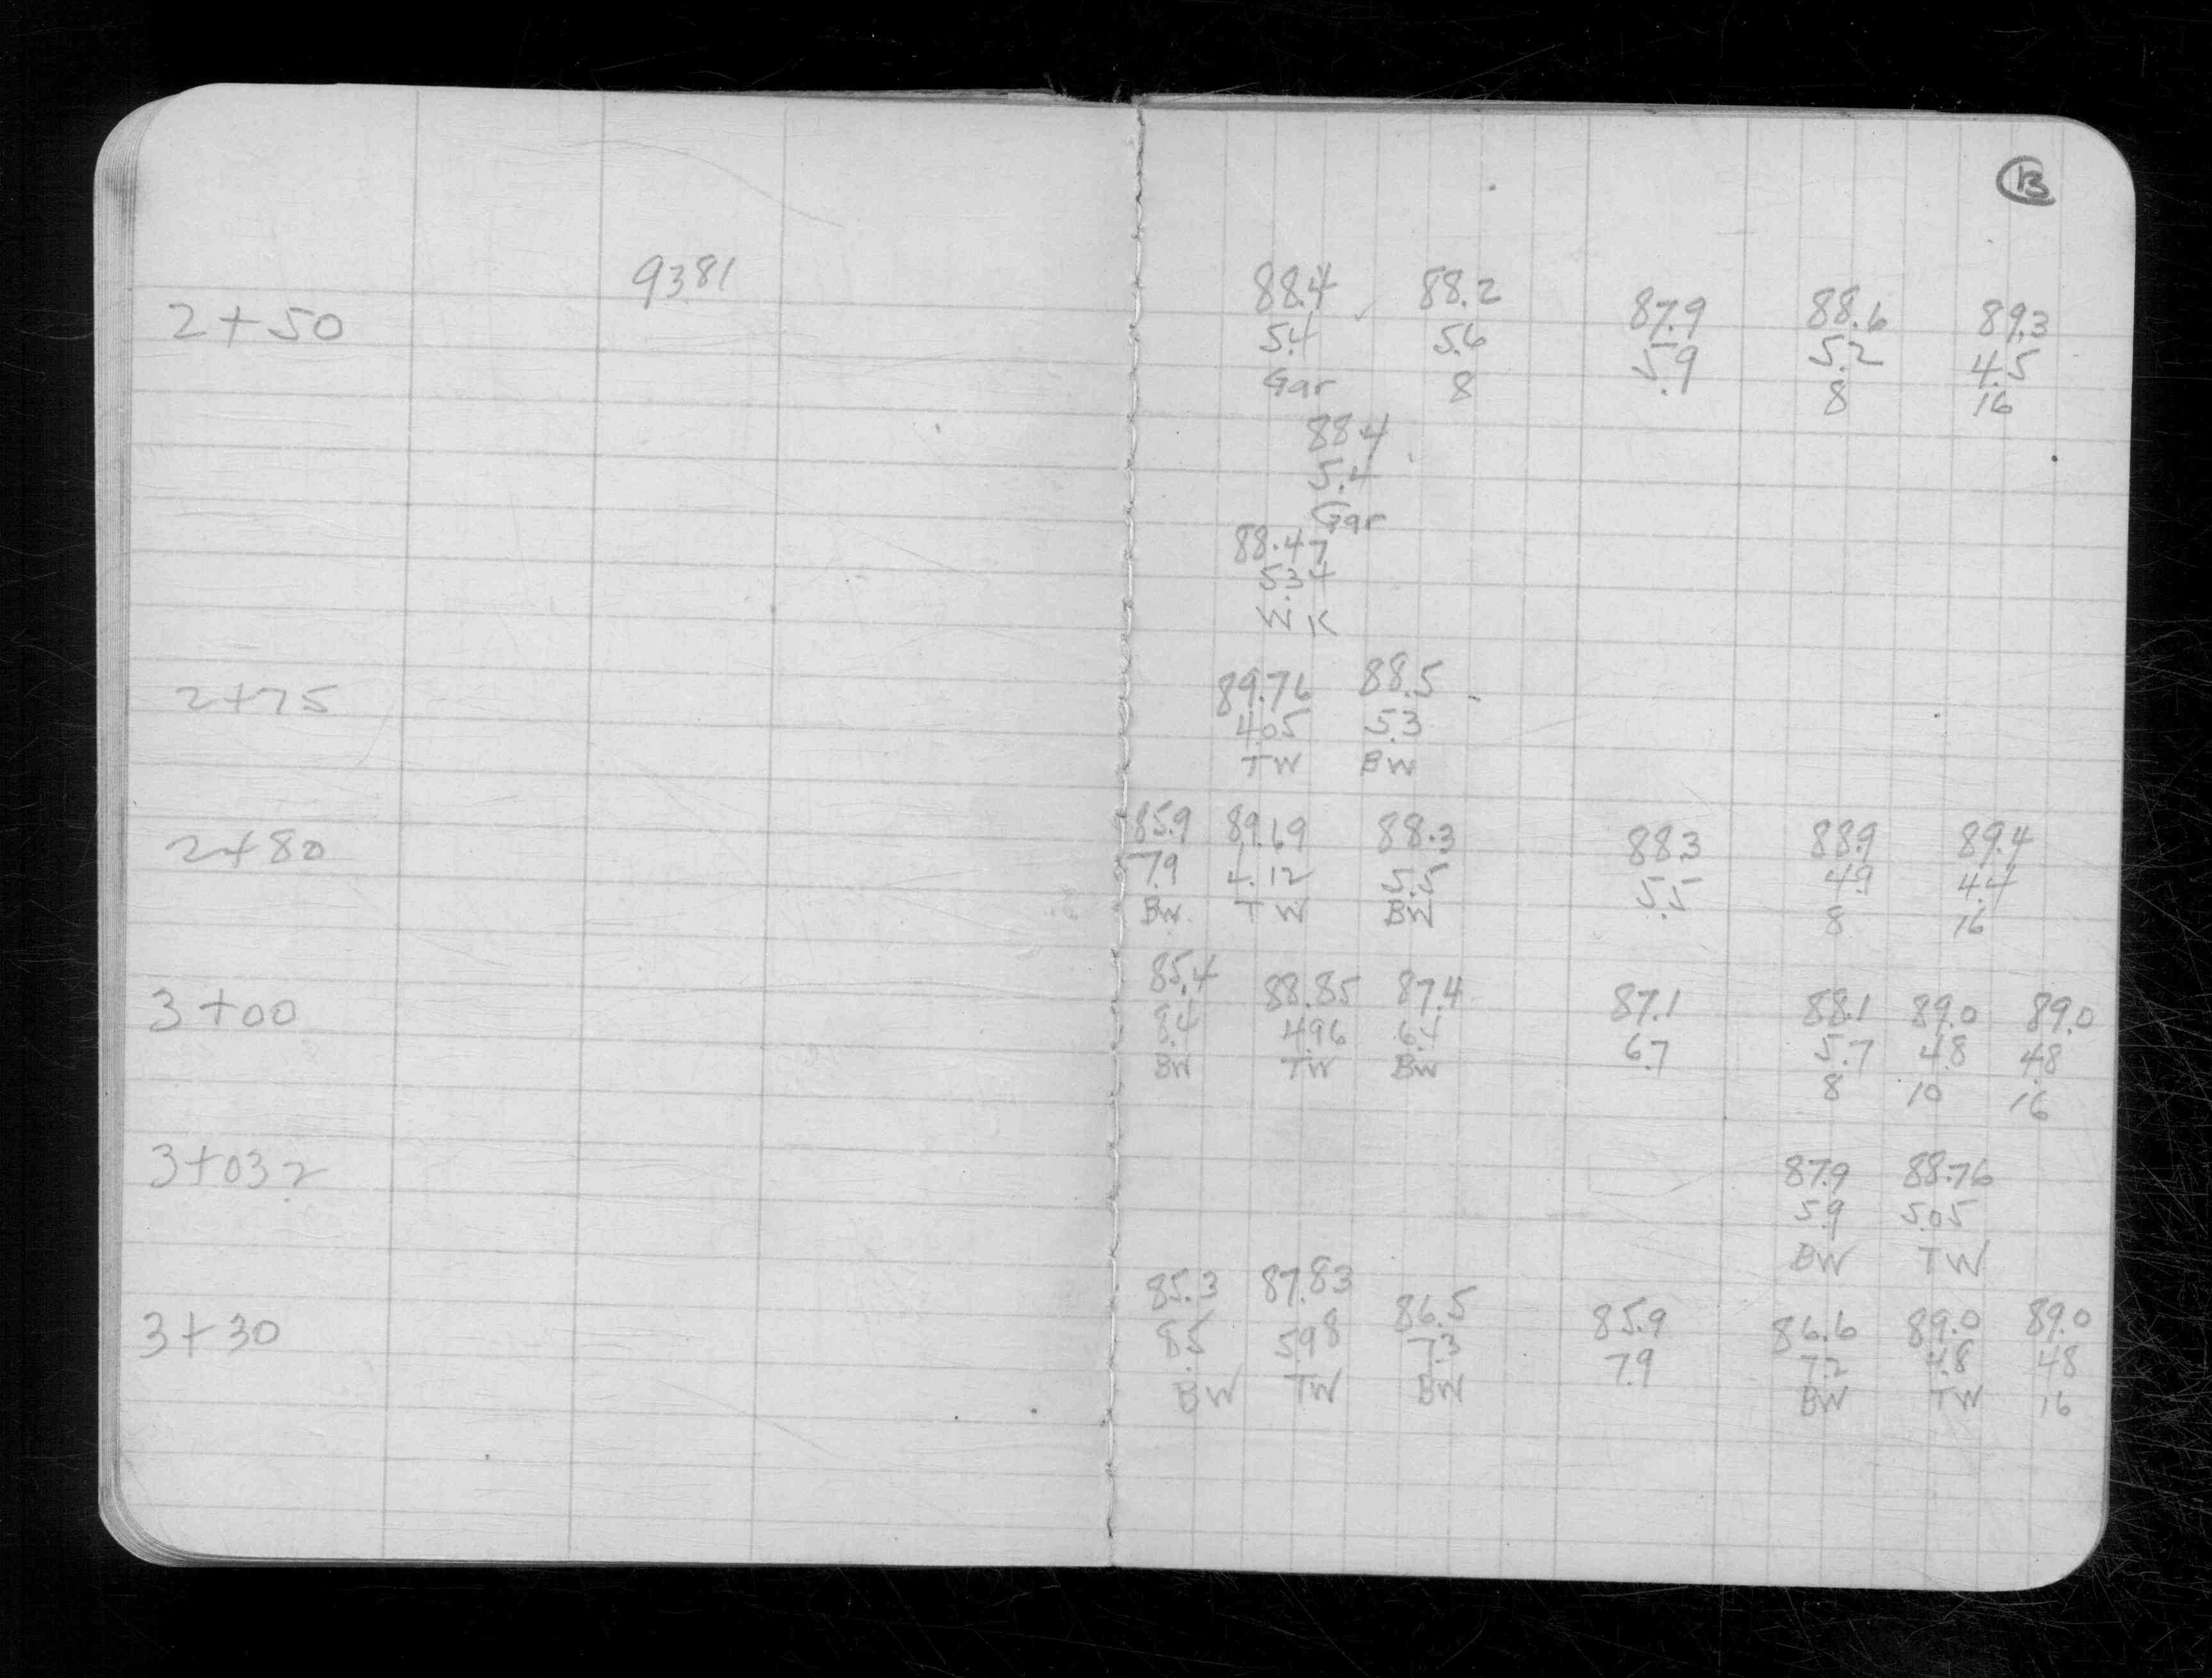 13
9381
2+50 88.4 88.2 87.9 88.6 89.3
5.4 5.6 5.9 5.2 4.5
Gar 8 8 16
88.4
5.4
Gar
88.47
5.34
W K
2+75 89.76 88.5
4.05 5.3
TW BW
2+80 85.9 89.69 88.3 88.3 88.9 89.4
7.9 4.12 5.5 5.5 4.9 4.4
BW TW BW 8 16
3+00 85.4 88.85 87.4 87.1 88.1 89.0 89.0
8.4 4.96 6.4 6.7 5.7 4.8 4.8
BW TW BW 8 10 16
3+03.2 87.9 88.76
5.9 5.05
BW TW
3+30 85.3 87.83 86.5 85.9 86.6 89.0 89.0
8.5 5.98 7.3 7.9 7.2 4.8 4.8
BW TW BW BW TW 16